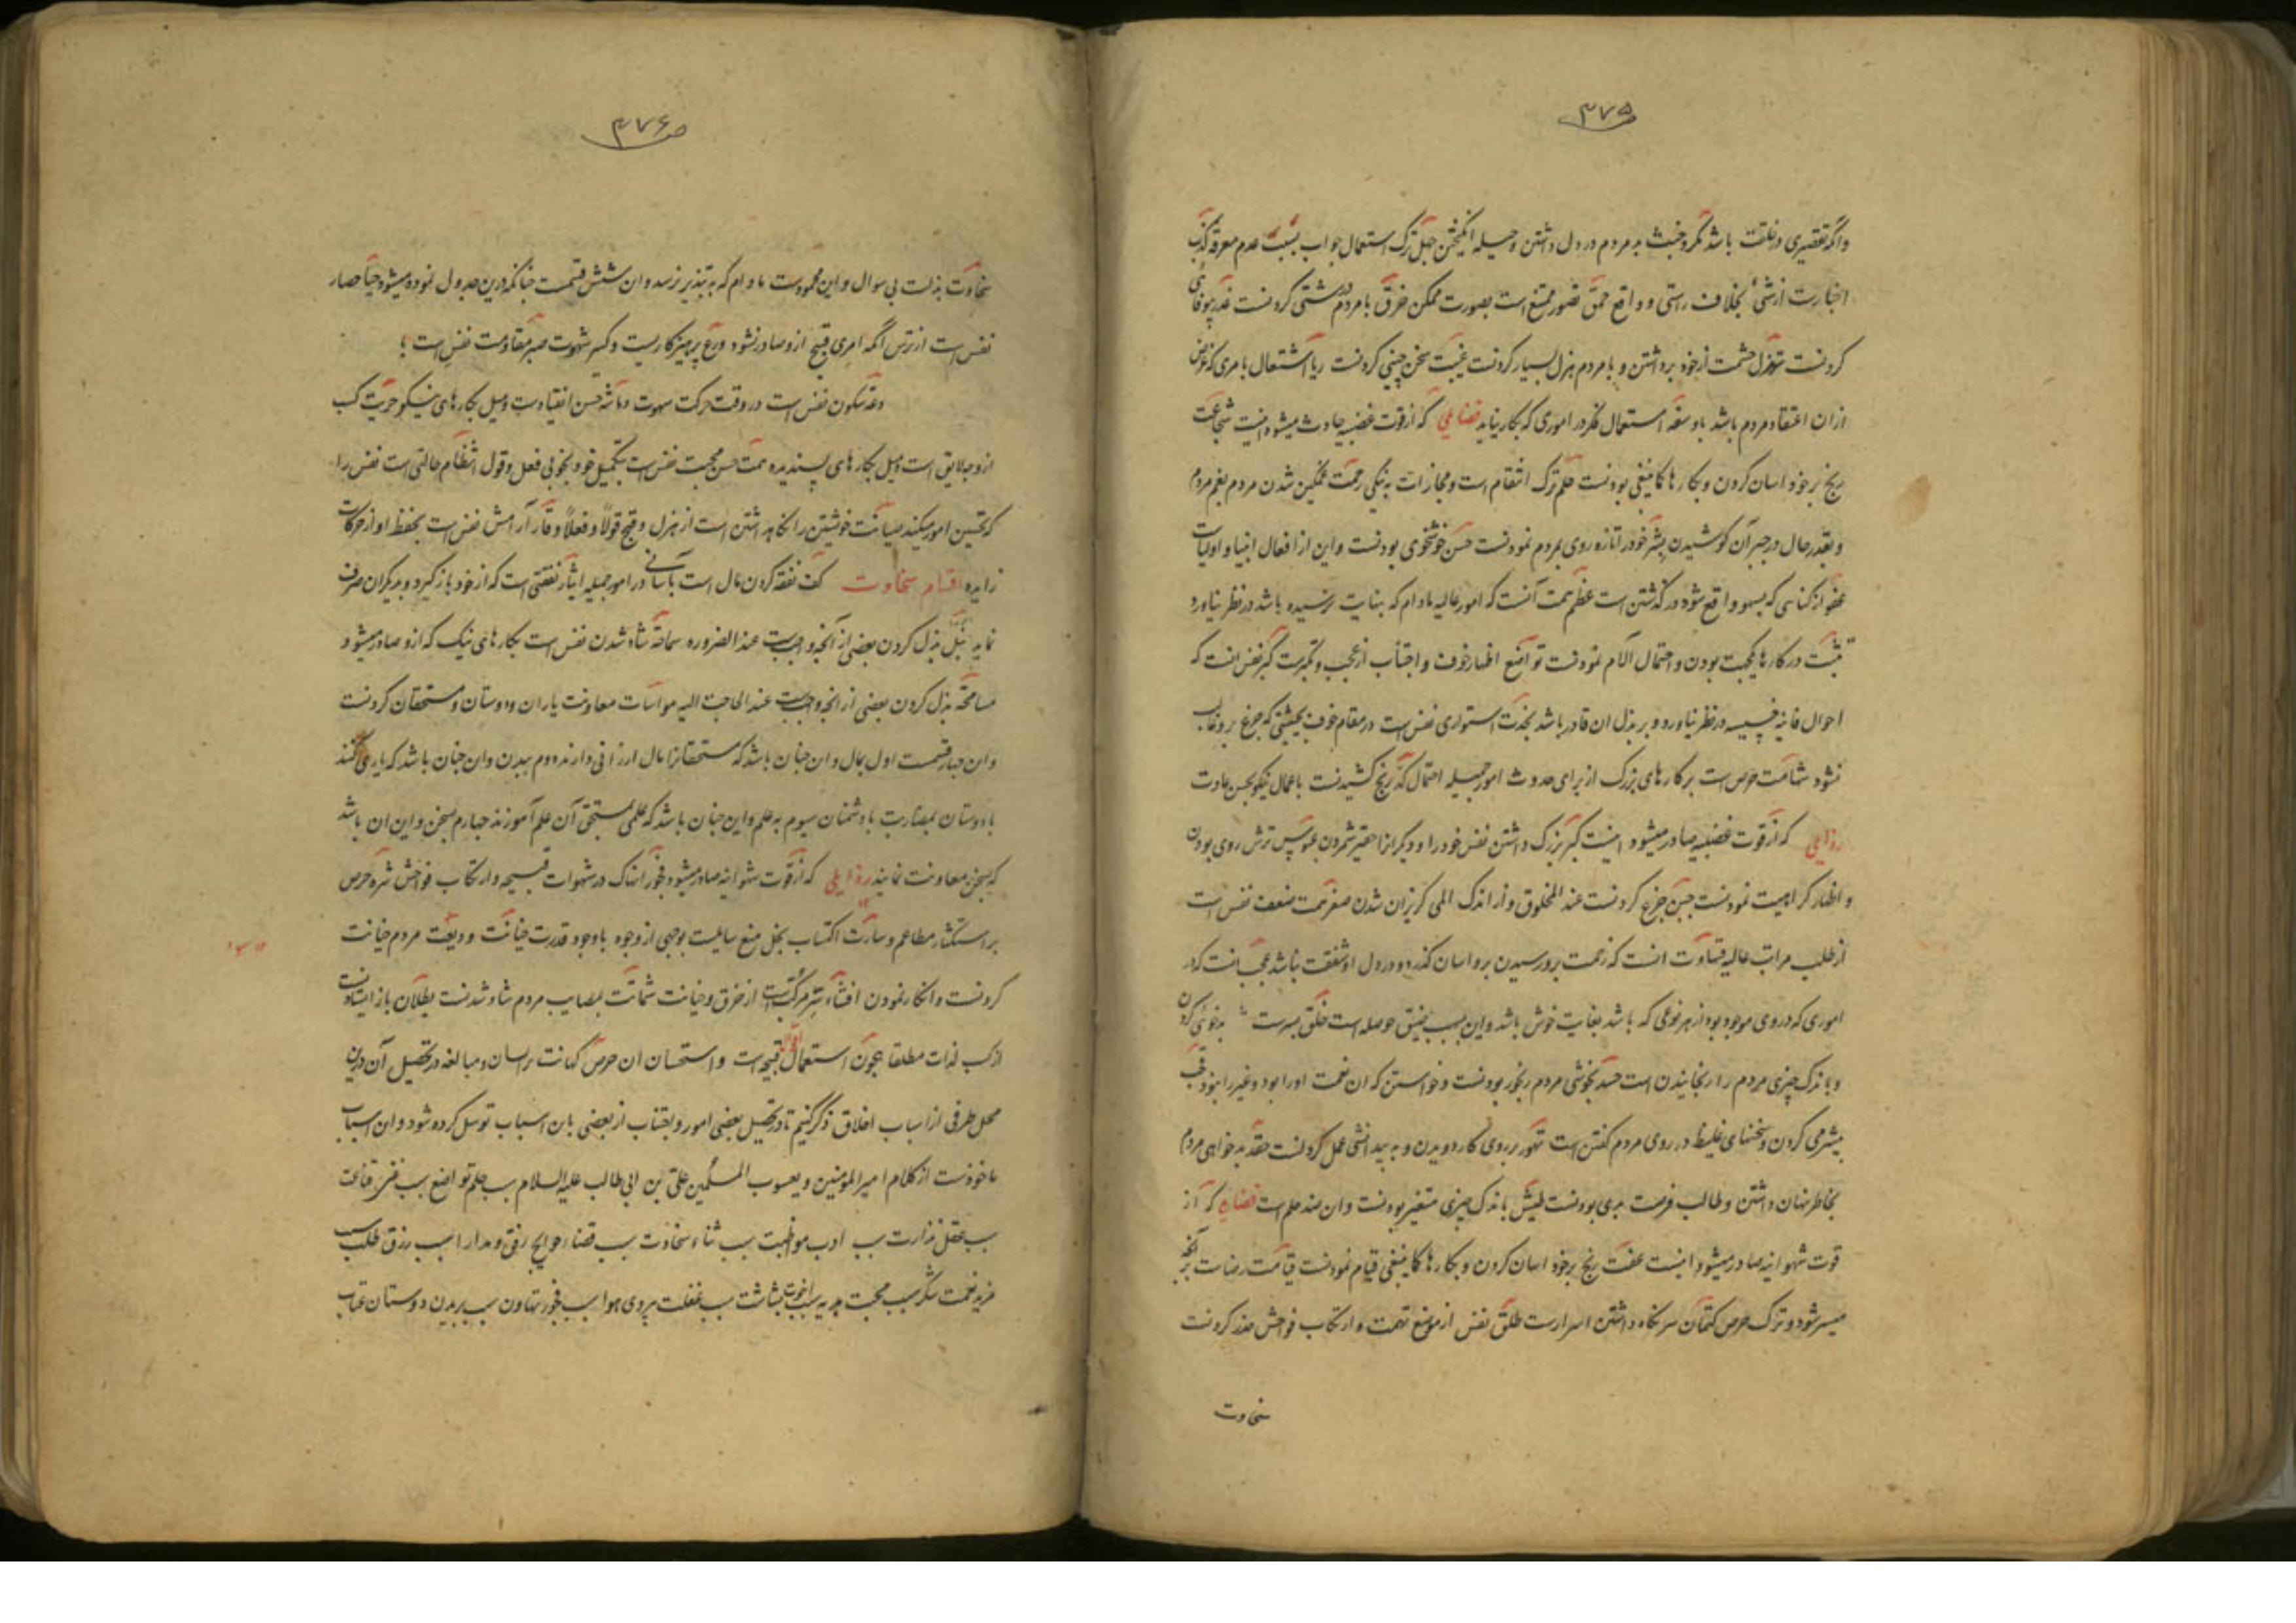 ص ۳۷۵
واگر تقصیری در خلقت باشد مکر و خبث بد مردم در دل داشتن و حیله انگیختن جهل ترک استعمال جواب بسبب عدم معرفة کذب
اخبارست از شیء بخلاف راستی و واقع حمق تصور ممتنع است بصورت ممکن خرق با مردم درشتی کردنست غدر بیوفائی
کردنست تهزل حشمت از خود برداشتن و با مردم هزل بسیار کردنست غیبت سخن چینی کردنست ریا اشتغال بامری که غرض
از ان اعتقاد مردم باشد باو سفه استعمال فکر در اموری که بکار نیاید فضایلی که از قوت غضبیه حادث میشود اینست شجاعت
رنج بر خود اسان کردن و بکارها کما ینبغی بودنست حلم ترک انتقام است و مجازات به نیکی رحمت غمگین شدن مردم بغم مردم
و بقدر حال در جبر آن کوشیدن بشر خود را تازه روی بمردم نمودنست حسن خوشخوی بودنست و این از افعال انبیا و اولیاست
عفو از گناهی که بسهو واقع شود در گذشتن است عظم همت آنست که امور عالیه مادام که بنهایت نرسیده باشد در نظر نیاورد
تثبت در کارها بجهت بودن و احتمال آلام نمودنست تواضع اظهار خوف و اجتناب از عجب و تکبرست کبر نفس انست که
احوال فانیه خسیسه در نظر نیاورد و بر بذل ان قادر باشد نجدت استواری نفس است در مقام خوف بحیثیتی که جزع برو غالب
نشود شهامت حرص است بر کارهای بزرگ از برای حدوث امور جمیله احتمال کد رنج کشیدنست باعمال نیکو بحسن عادت
رذایلی که از قوت غضبیه صادر میشود اینست کبر بزرگ داشتن نفس خود را و دیگرانرا حقیر شمردن عبوس ترش روی بودن
و اظهار کراهیت نمودنست جبن جزع کردنست عند المخلوق و از اندک المی گریزان شدن صغر همت ضعف نفس است
از طلب مراتب عالیه قساوت انست که زحمت برو رسیدن برو اسان گذرد و در دل او شفقت نباشد عجب انست که در
اموری که در وی موجود بود از هر نوعی که باشد بغایت خوش باشد و این بسبب ضیق حوصله است خلق بدست بدخوئی کردن
و باندک چیزی مردم را رنجانیدن است حسد بخوشی مردم رنجور بودنست و خواستن که ان نعمت او را بود و غیر را نبود قحب
بیشرمی کردن و سخنهای غلیظ در روی مردم گفتن است تهور بر روی کار دویدن و به بیدانشی عمل کردنست حقد بدخواهی مردم
بخاطر نهان داشتن و طالب فرصت بدی بودنست طیش باندک چیزی متغیر بودنست و ان ضد حلم است فضایلی که از
قوت شهوانیه صادر میشود اینست عفت رنج بر خود اسان کردن و بکارها کما ینبغی قیام نمودنست قناعت رضاست بر انچه
میسر شود و ترک حرص کتمان سر نگاه داشتن اسرارست طلق نفس از موضع تهمت و ارتکاب فواحش حذر کردنست
سخاوت
ص ۳۷۶
سخاوت بذلست بی سوال و این محمودست مادام که به تبذیر نرسد و ان شش قسمست چنانکه درین جدول نموده میشود حیا حصار
نفس است از ترس آنکه امری قبیح ازو صادر نشود ورع پرهیزکاریست و کسر شهوت صبر مقاومت نفس است
دعه سکون نفس است در وقت حرکت شهوت دماثه حسن انقیادست و میل بکارهای نیکو حریت کسب
از وجه لایق است و میل بکارهای پسندیده سمت حسن محبت نفس است بتکمیل خود بخوبی فعل و قول انتظام حالتی است نفس را
که تحسین امور میکند صیانت خویشتن را نگاهداشتن است از هزل و قبح قولا و فعلا وقار آرامش نفس است بحفظ او از حرکات
زایده اقسام سخاوت کف نفقه کردن مال است بآسانی در امور جمیله ایثار نفقتی است که از خود باز گیرد و بدیگران صرف
نماید نبل بذل کردن بعضی از آنچه واجبست عند الضروره سماحة شاد شدن نفس است بکارهای نیک که ازو صادر میشود
مسامحة بذل کردن بعضی از انچه واجبست عند الحاجت الیه مواسات معاونت یاران و دوستان و مستحقان کردنست
و ان چهار قسمست اول بمال و ان چنان باشد که مستحقانرا مال ارزانی دارند دوم ببدن و ان چنان باشد که یاری کنند
با دوستان بمضاربت با دشمنان سیوم به علم و این چنان باشد که علمی بمستحق آن علم آموزند چهارم بسخن و این ان باشد
که بسخن معاونت نمایند رذایلی که از قوت شهوانیه صادر میشود فجور انهماک در شهوات قبیحه و ارتکاب فواحش شره حرص
بر استکثار مطاعم و سارت اکتساب بخل منع سایلست بوجهی از وجوه باوجود قدرت خیانت ودیعت مردم خیانت
کردنست و انکار نمودن افشاء سر مرکبست از خرق و خیانت شماتت بمصایب مردم شاد شدنست بطلان باز ایستادنست
از کسب لذات مطلقا مجون استعمال اقوال قبیحست و استحسان ان حرص کهانت برسان و مبالغه در تحصیل آن درین
محل طرفی از اسباب اخلاق ذکر کنیم تا در تحصیل بعضی امور و اجتناب از بعضی بان اسباب توسل کرده شود و ان اسباب
ماخوذست از کلام امیرالمؤمنین و یعسوب المسلمین علی بن ابی طالب علیه السلام سبب حلم تواضع سبب فقر قناعت
سبب عقل نذارت سبب ادب مواظبت سبب ثناء سخاوت سبب قضاء حوایج رفق و مدارا سبب رزق طلب سبب
مزید نعمت شکر سبب محبت هدیه سبب اخوت بشاشت سبب غفلت پیروی هوا سبب فجور تهاون سبب بریدن دوستان عتاب